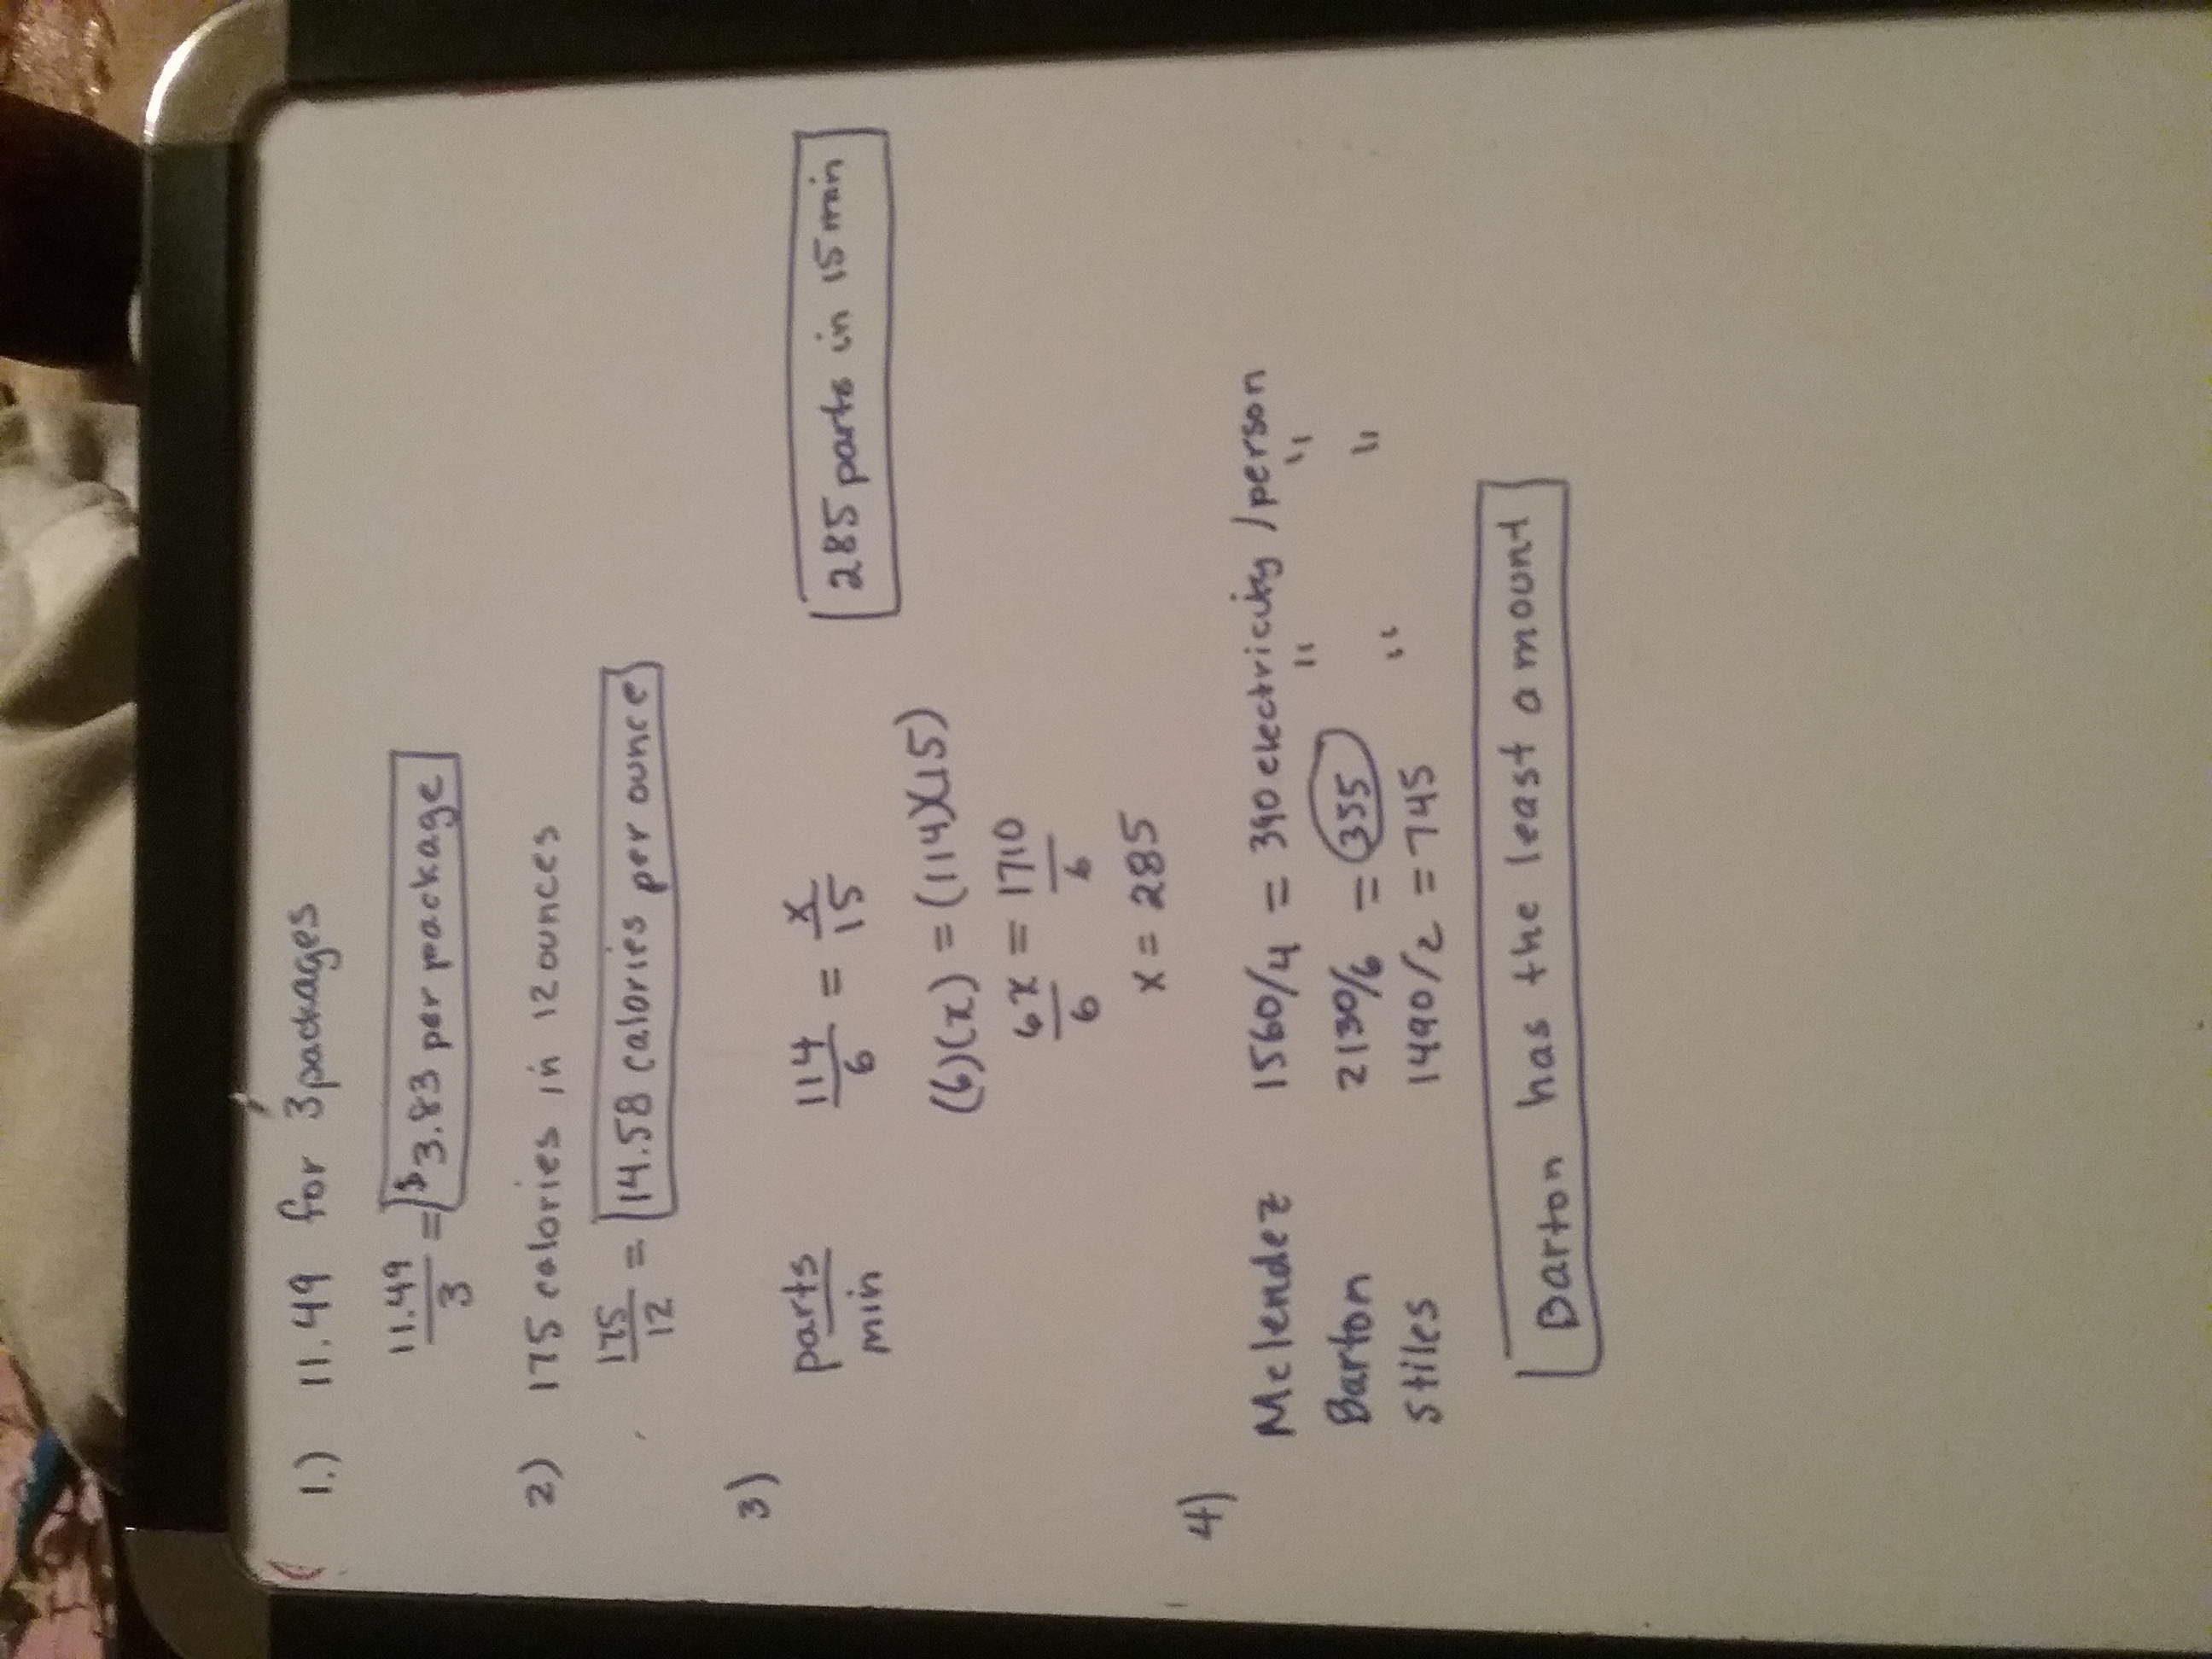 1.) 11.49 for 3 packages
11.49/3 = $3.83 per package
2) 175 calories in 12 ounces
175/12 = 14.58 calories per ounce
3) parts/min 114/6 = x/15 285 parts in 15 min
(6)(x) = (114)(15)
6x/6 = 1710/6
x = 285
4) Melendez 1560/4 = 390 electricity/person
Barton 2130/6 = 355 " "
Stiles 1490/2 = 745 " "
Barton has the least amount